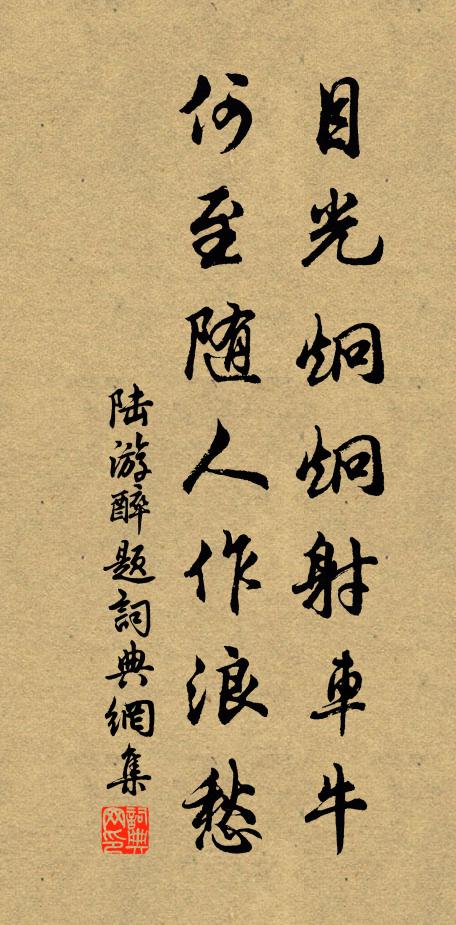 目光炯炯射車牛
何至随人作浪愁
陆游醉题詞典網集
詞典網印